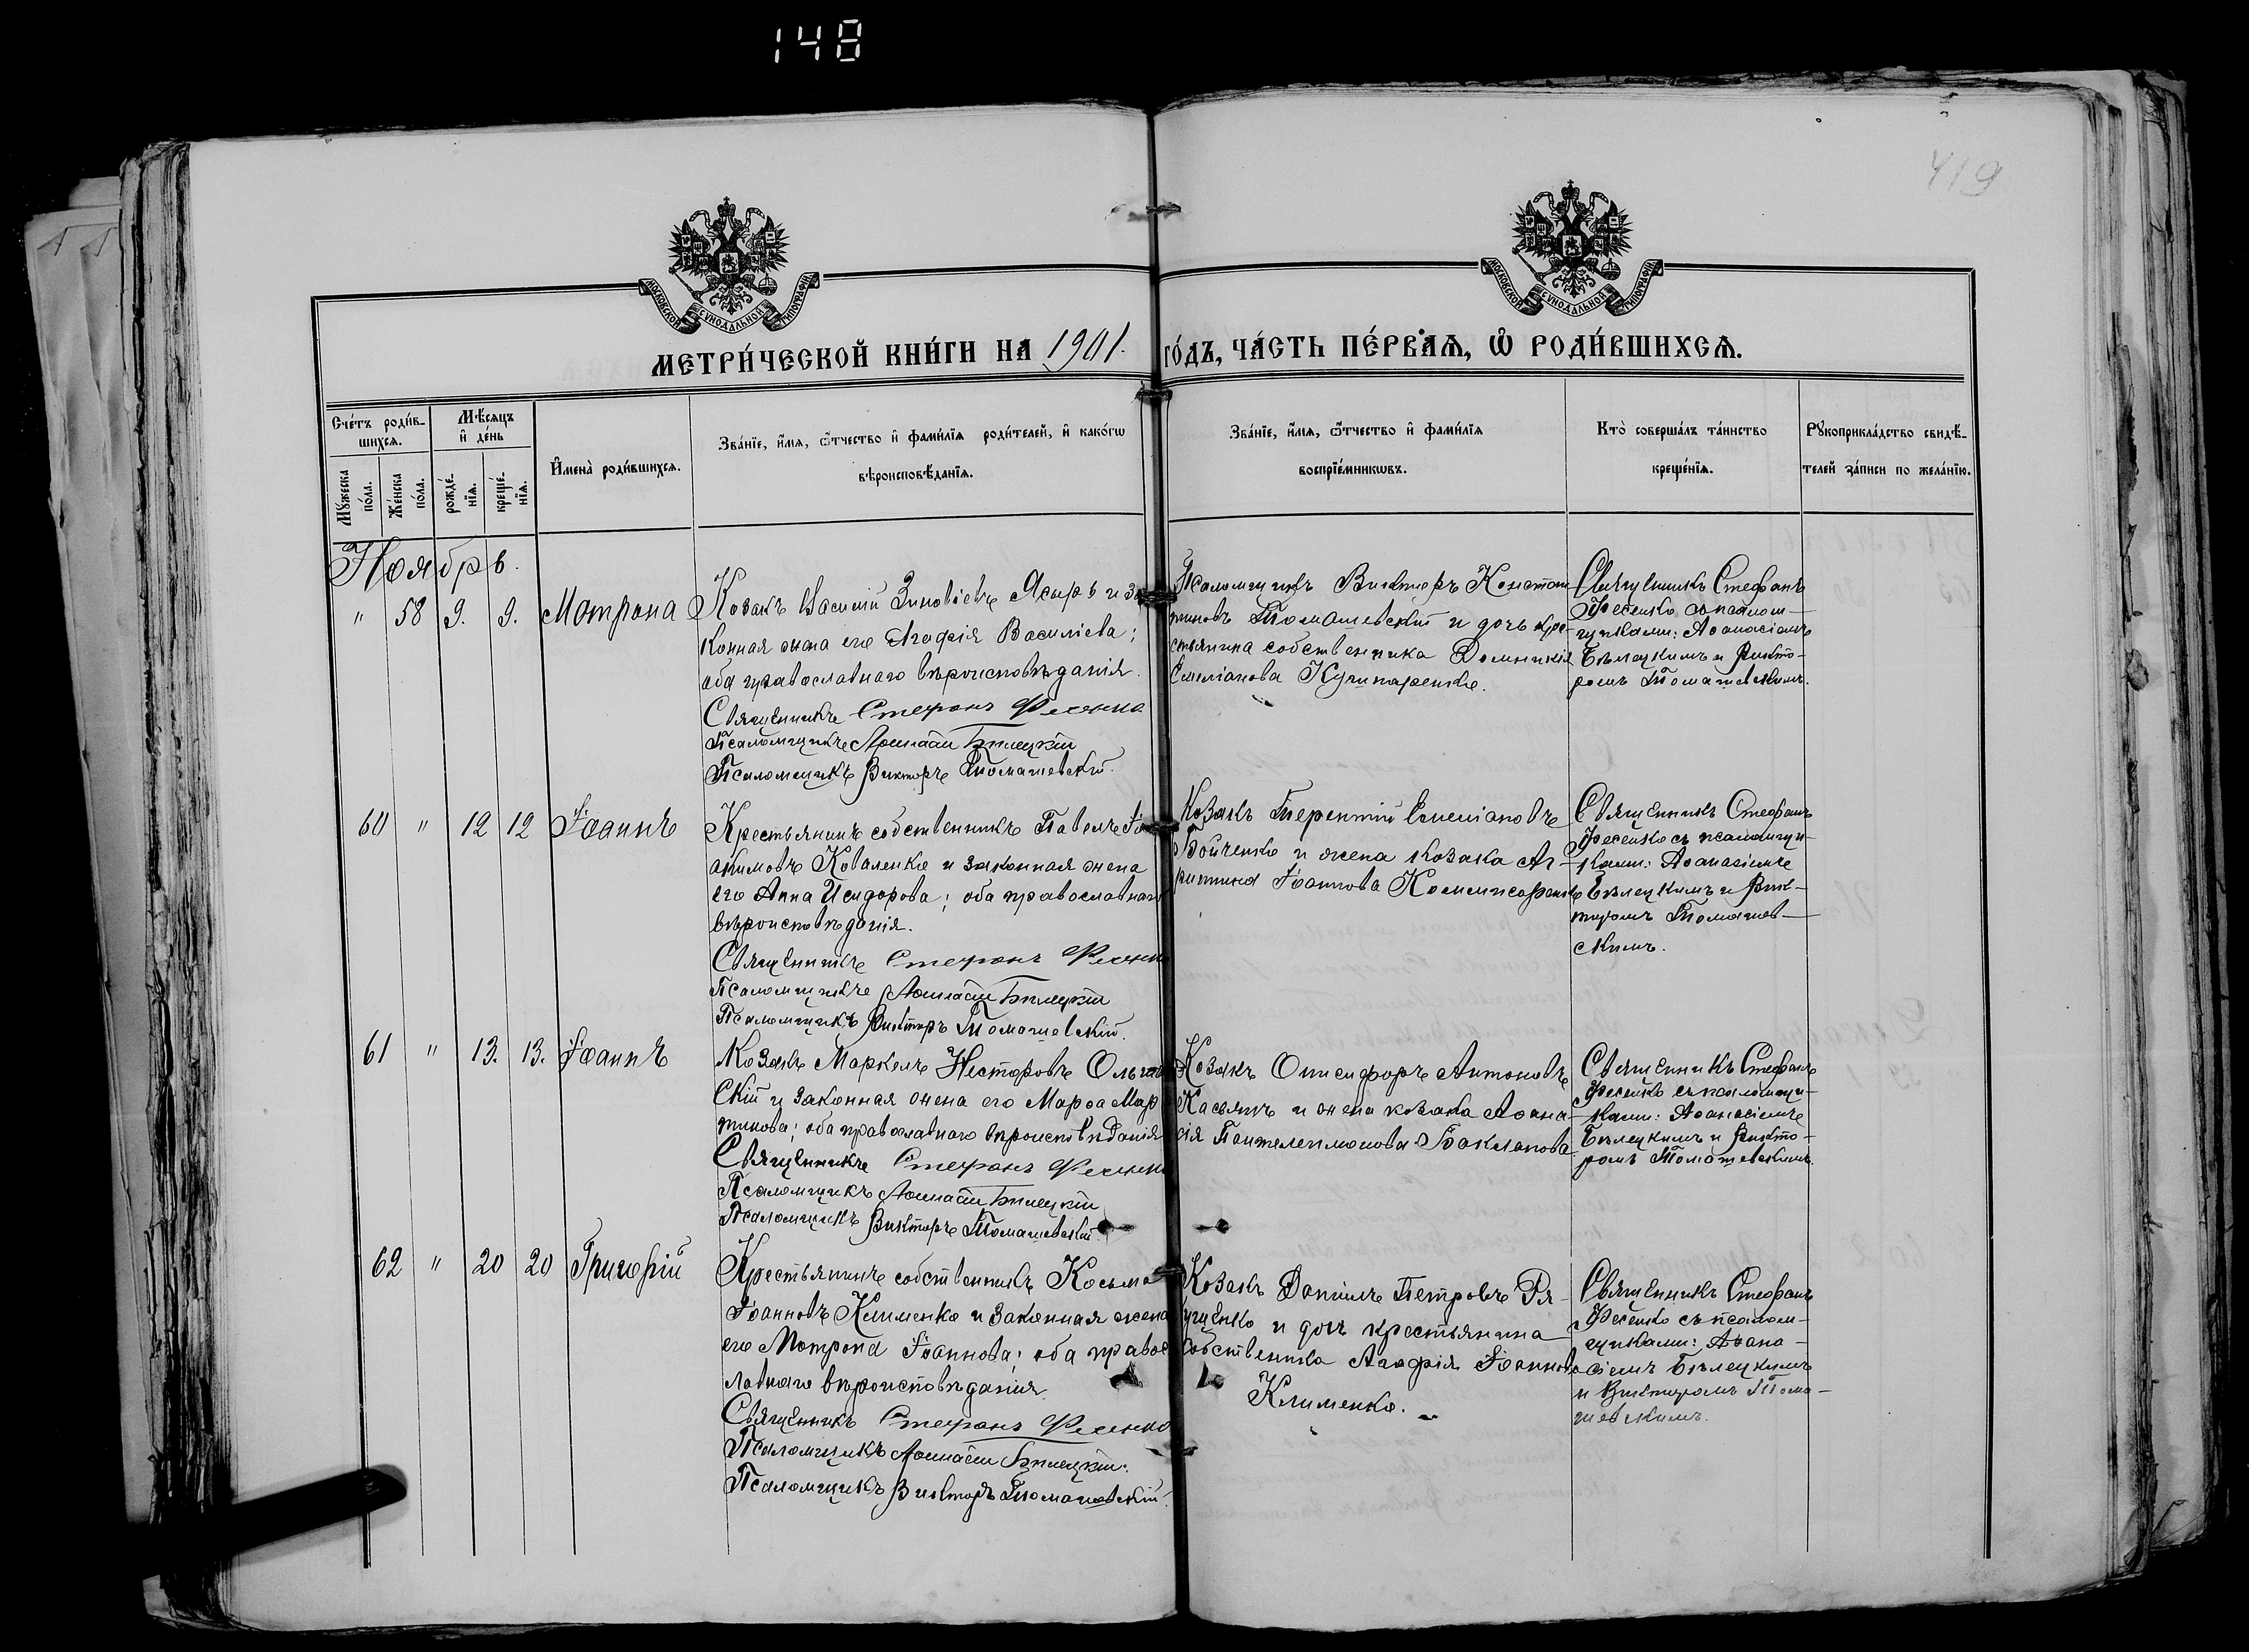 148
419
МОСКОВСКОЙ СѴНОДАЛЬНОЙ ТИПОГРАФІИ
МОСКОВСКОЙ СѴНОДАЛЬНОЙ ТИПОГРАФІИ
МЕТРИ́ЧЕСКОЙ КНИ́ГИ НА 1901. ГО́ДЪ, ЧА́СТЬ ПЕ́РВАѦ, Ѡ҆ РОДИ́ВШИХСѦ.
Сче́тъ роди́в-
шихсѧ.
Мꙋ́жеска по́ла.
Же́нска по́ла.
Мѣ́сѧцъ и҆ де́нь
рожде́-
нїѧ.
креще́-
нїѧ.
И҆мена̀ роди́вшихсѧ.
Зва́нїе, и҆́мѧ, ѻ҆́тчество и҆ фами́лїѧ роди́телей, и҆ како́гѡ
вѣроисповѣ́данїѧ.
Зва́нїе, и҆́мѧ, ѻ҆́тчество и҆ фами́лїѧ
воспрїе́мникѡвъ.
Кто̀ соверша́лъ та́инство
креще́нїѧ.
Рꙋкоприкла́дство свидѣ́-
телей за́писи по жела́нїю.
Ноябрь.
" 58 9. 9. Матрона
Козакъ Василій Зиновіевъ Ясыръ и за
конная жена его Агафія Василіева;
оба православнаго вѣроисповѣданія.
Священникъ Стефанъ Фесенко
Псаломщикъ Аѳанасій Бѣлецкій
Псаломщикъ Викторъ Томашевскій.
Псаломщикъ Викторъ Констан
тиновъ Томашевскій и дочь кре-
стьянина собственника Домникія
Емеліанова Кушнаренко.
Священникъ Стефанъ
Фесенко съ псалом-
щиками: Аѳанасіемъ
Бѣлецкимъ и Викто-
ромъ Томашевскимъ.
60 " 12 12 Іоаннъ
Крестьянинъ собственникъ Павелъ Іо
акимовъ Коваленко и законная жена
его Анна Исидорова; оба православнаго
вѣроисповѣданія.
Священникъ Стефанъ Фесенко
Псаломщикъ Аѳанасій Бѣлецкій
Псаломщикъ Викторъ Томашевскій.
Козакъ Терентій Емеліановъ
Бойченко и жена козака Аг-
рипина Іоаннова Коммисаренко
Священникъ Стефанъ
Фесенко съ псаломщи-
ками: Аѳанасіемъ
Бѣлецкимъ и Вик-
торомъ Томашев-
скимъ.
61 " 13. 13. Іоаннъ
Козакъ Маркелъ Несторовъ Ольшан
скій и законная жена его Марѳа Мар
тинова; оба православнаго вѣроисповѣданія
Священникъ Стефанъ Фесенко
Псаломщикъ Аѳанасій Бѣлецкій
Псаломщикъ Викторъ Томашевскій.
Козакъ Онисифоръ Антоновъ
Касьянъ и жена козака Аѳана-
сія Пантелеимонова Бакланова
Священникъ Стефанъ
Фесенко съ псаломщи-
ками: Аѳанасіемъ
Бѣлецкимъ и Викто-
ромъ Томашевскимъ.
62 " 20 20 Григорій
Крестьянинъ собственникъ Косьма
Іоанновъ Клименко и законная жена
его Матрона Іоаннова; оба правос
лавнаго вѣроисповѣданія.
Священникъ Стефанъ Фесенко
Псаломщикъ Аѳанасій Бѣлецкій.
Псаломщикъ Викторъ Томашевскій.
Козакъ Даніилъ Петровъ Ря-
щенко и дочь крестьянина
собственника Агафія Іоаннова
Клименко.
Священникъ Стефанъ
Фесенко съ псалом-
щиками: Аѳана-
сіемъ Бѣлецкимъ
и Викторомъ Тома-
шевскимъ.